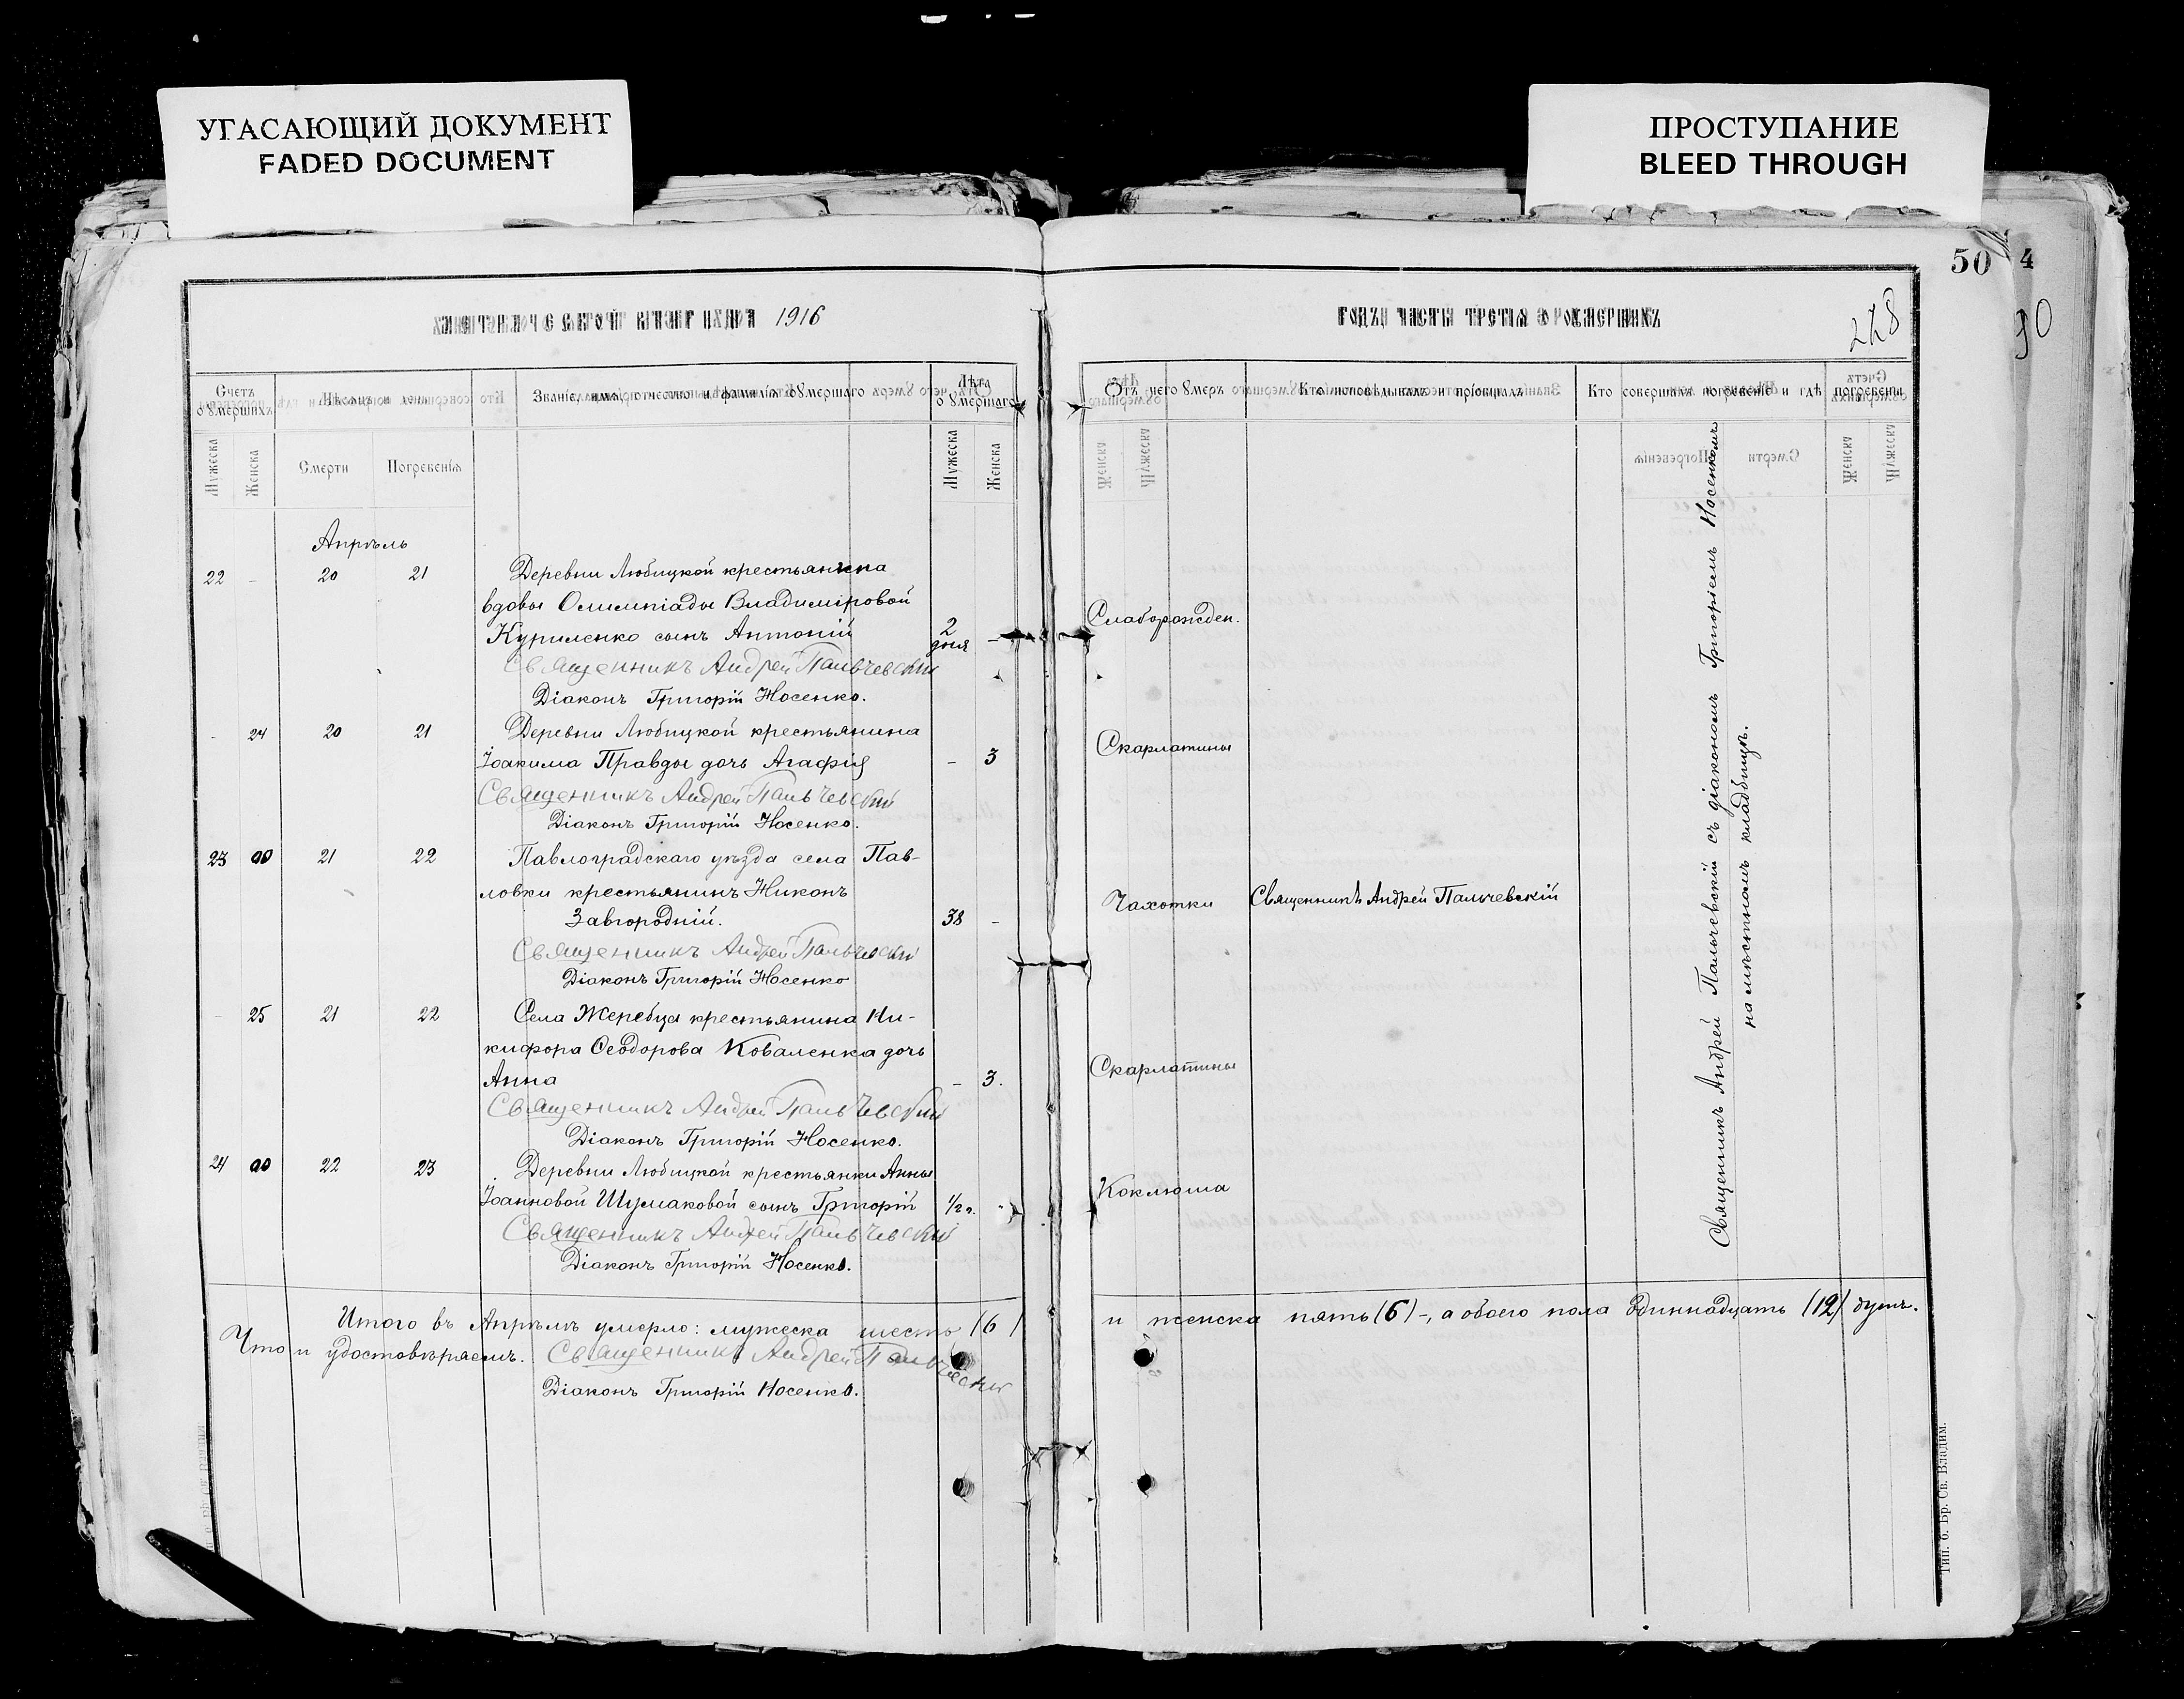 УГАСАЮЩИЙ ДОКУМЕНТ
FADED DOCUMENT
ПРОСТУПАНИЕ
BLEED THROUGH
50
4
90
228
1916
годъ, часть третїя о умершихъ
Счетъ оумершихъ
Мѣсяцъ и день
Званїе, имя, отчество и фамилїя оумершаго
Лѣта оумершаго
Мужеска
Женска
Смерти
Погребенїя
Мужеска
Женска
Отъ чего оумеръ
Кто исповѣдывалъ и прїобщалъ
Кто совершалъ погребенїе и гдѣ погребены
Апрѣль
22 - 20 21 Деревни Любицкой крестьянка
вдовы Олимпіады Владиміровой
Куриленко сынъ Антоній 2 дня - Слаборожден.
Священникъ Андрей Пальчевскій
Діаконъ Григорій Носенко.
- 24 20 21 Деревни Любицкой крестьянина
Іоакима Правды дочь Агафія - 3 Скарлатины
Священникъ Андрей Пальчевскій
Діаконъ Григорій Носенко.
23 00 21 22 Павлоградскаго уѣзда села Пав-
ловки крестьянинъ Никонъ
Завгородній. 38 - Чахотки Священникъ Андрей Пальчевскій
Священникъ Андрей Пальчевскій
Діаконъ Григорій Носенко
- 25 21 22 Села Жеребца крестьянина Ни-
кифора Ѳеодорова Коваленка дочь
Анна - 3. Скарлатины
Священникъ Андрей Пальчевскій
Діаконъ Григорій Носенко.
24 00 22 23 Деревни Любицкой крестьянки Анны
Іоанновой Шумаковой сынъ Григорій 1/2 г. - Коклюша
Священникъ Андрей Пальчевскій
Діаконъ Григорій Носенко.
Священникъ Андрей Пальчевскій съ діакономъ Григоріемъ Носенкомъ
на мѣстномъ кладбищѣ.
Итого въ Апрѣлѣ умерло: мужеска шесть (6) и женска пять (6)-, а обоего пола одиннадцать (12) душъ.
Что и удостовѣряемъ. Священникъ Андрей Пальчевскій
Діаконъ Григорій Носенко.
Тип. о. Бр. Св. Владим.